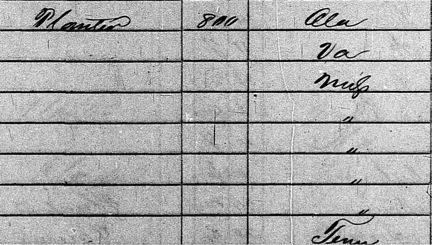 Planter 800 Ala
Va
Miss
"
"
"
"
Tenn